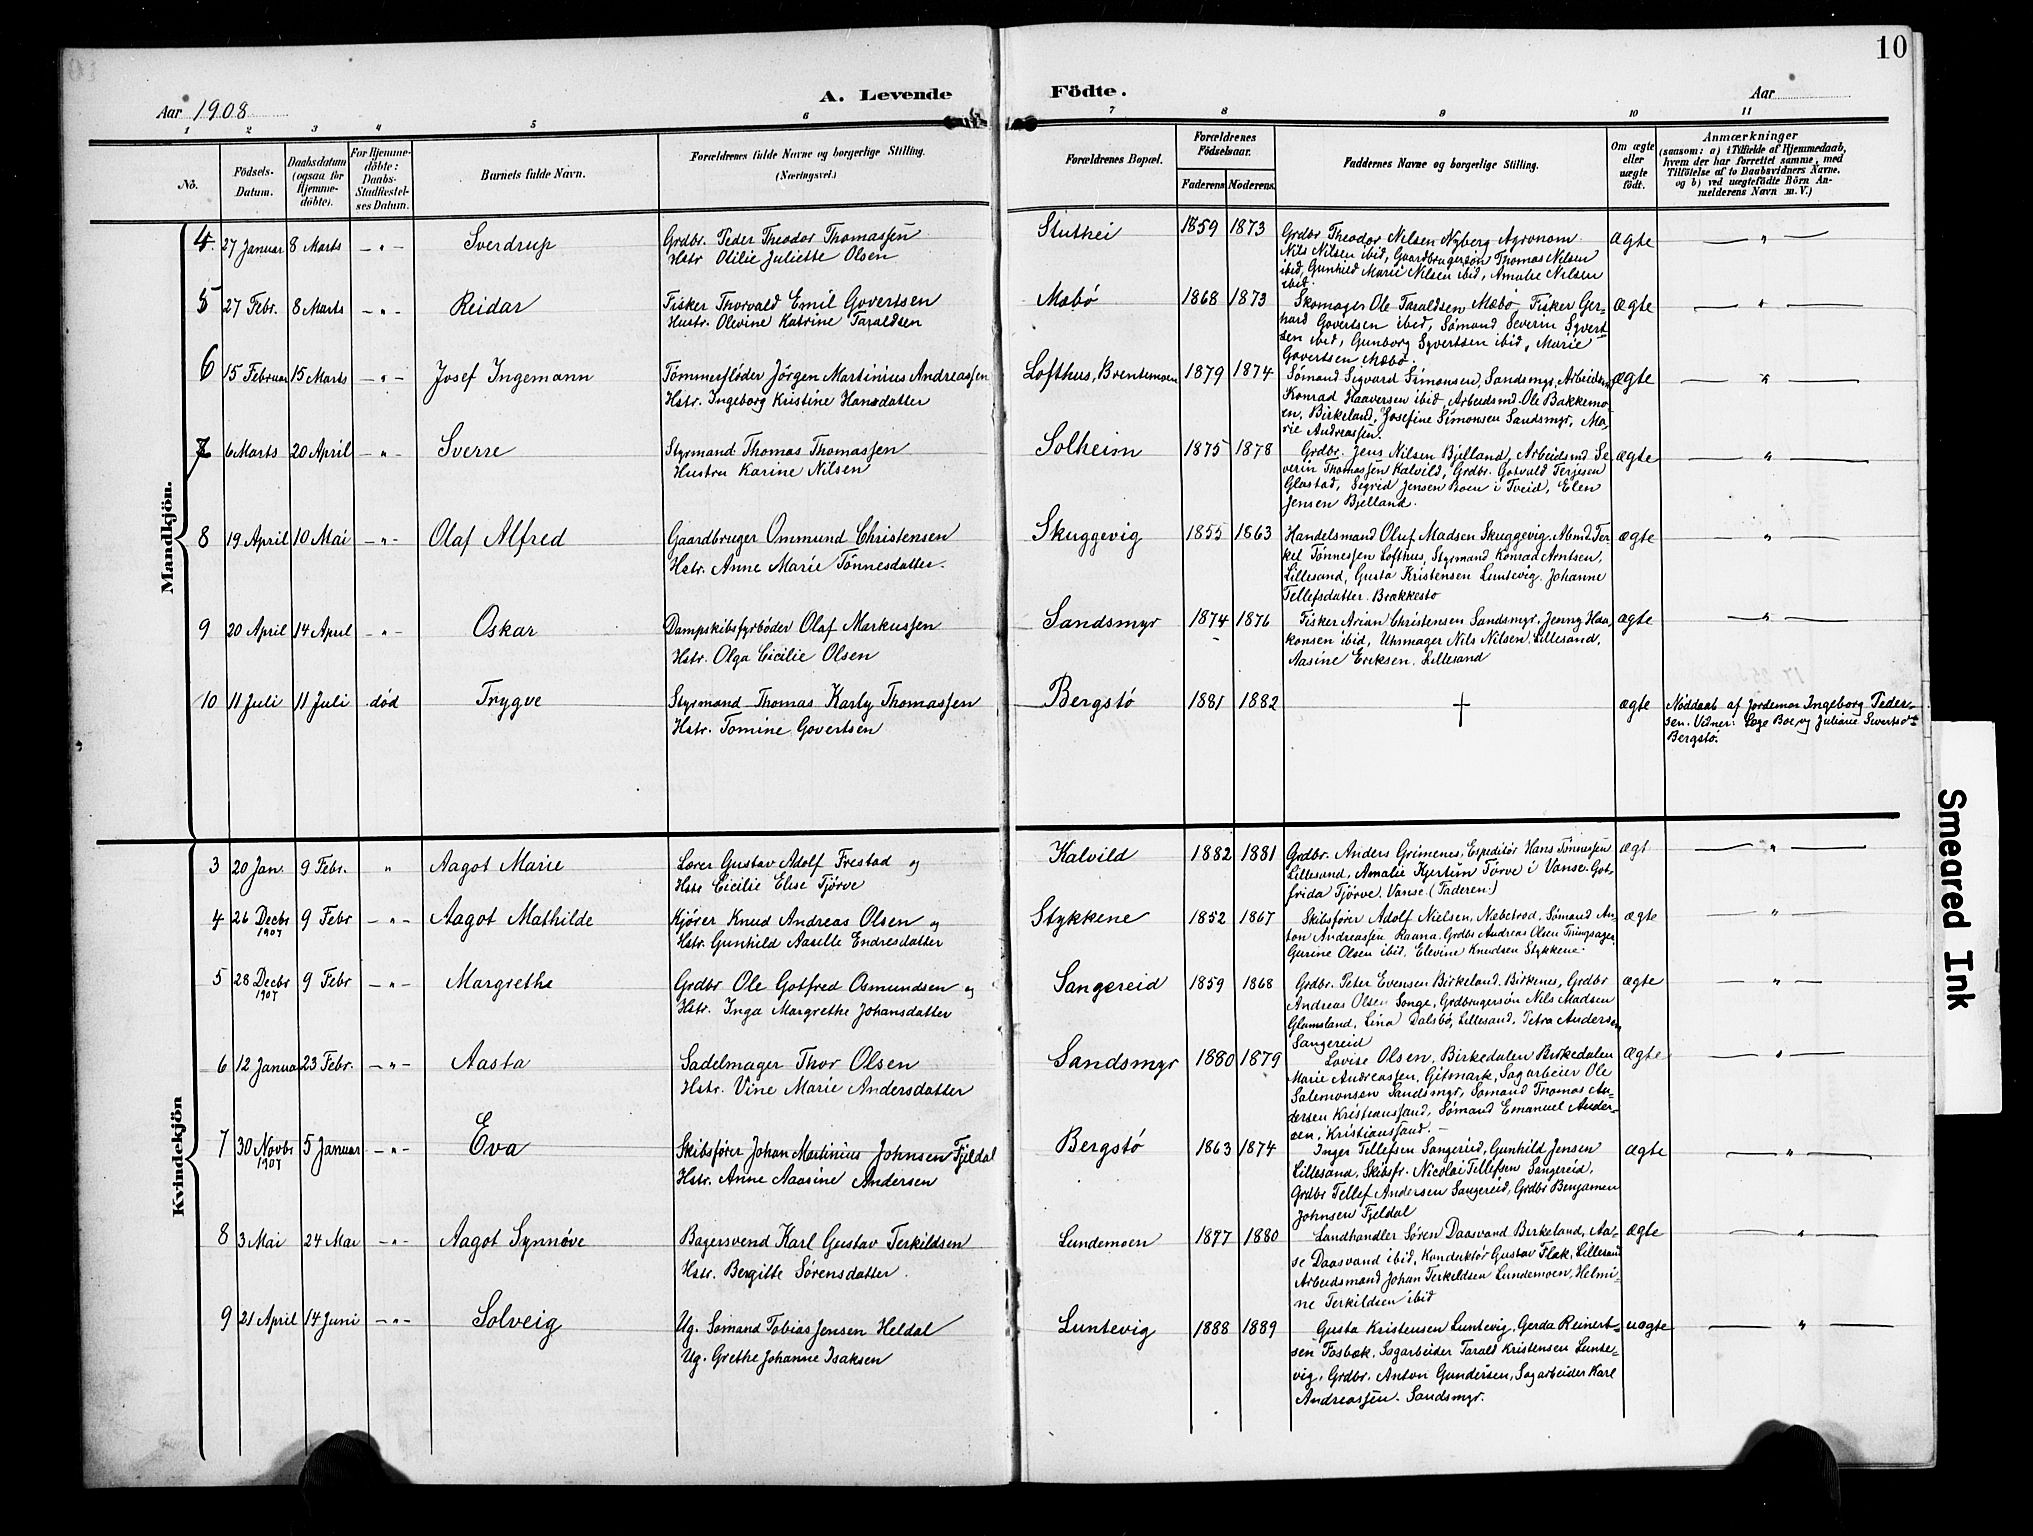 10
Aar 1908
A. Levende
Födte.
Aar
1 2 3 4 5 6 7 8 9 10 11
No.
Födsels-
Datum.
Daabsdatum
(ogsaa for
Hjemme-
döbte).
For Hjemme-
döbte:
Daabs-
Stadfæstel-
ses Datum.
Barnets fulde Navn.
Forældrenes fulde Navne og borgerlige Stilling.
(Næringsvei.)
Forældrenes Bopæl.
Forældrenes
Födselsaar.
Faderens. Moderens.
Faddernes Navne og borgerlige Stilling.
Om ægte
eller
uægte
födt.
Anmærkninger
(saasom: a) i Tilfælde af Hjemmedaab,
hvem der har forrettet samme, med
Tilföielse af to Daabsvidners Navne,
og b) ved uægtefödte Börn An-
melderens Navn m. V.)
Mandkjön.
4. 27 Januar 8 Marts – " – Sverdrup Grdbr. Peder Theodor Thomassen
Hstr Otilie Juliette Olsen
Stuthei 1859 1873 Grdbr Theodor Nilsen Nyberg Agronom
Nils Nilsen ibid, Gaardbrugersøn Thomas Nilsen
ibid, Gunhild Marie Nilsen ibid, Amalie Nilsen
ibid.
ægte — " —
5 27 Febr. 8 Marts – " – Reidar Fisker Thorvald Emil Govertsen
Hustr. Olevine Katrine Taraldsen
Mæbø 1868 1873 Skomager Ole Taraldsen Mæbø Fisker Ger-
hard Govertsen ibid, Sømand Severin Syvert-
sen ibid, Gunborg Syvertsen ibid, Marie
Govertsen Mæbø.
ægte — " —
6 15 Februar 15 Marts – " – Josef Ingemann Tømmerfløder Jörgen Martinius Andreassen
Hstr. Ingeborg Kristine Hansdatter
Lofthus, Brentemoen 1879 1874 Sømand Sigvard Simonsen, Sandsmyr, Arbeidsm.
Konrad Haaversen ibid, Arbeidsmd. Ole Bakkemo-
en, Birkeland, Josefine Simonsen Sandsmyr, Ma-
rie Andreassen.
ægte — " —
7 6 Marts 20 April – " – Sverre Styrmand Thomas Thomassen
Hustru Karine Nilsen
Solheim 1875 1878 Grdbr. Jens Nilsen Bjelland, Arbeidsmd Se-
verin Thomassen Kalvild, Grdbr. Gotvald Terjesen
Glastad, Sigrid Jensen Boen i Tveid, Elen
Jensen Bjelland.
ægte — " —
8 19 April 10 Mai – " – Olaf Alfred Gaardbruger Ommund Christensen
Hstr. Anne Marie Tönnesdatter.
Skuggevig 1855 1863 Handelsmand Oluf Madsen Skuggevig, Abmd Ter-
kel Tønnessen Lofthus, Styrmand Konrad Arntsen,
Lillesand, Gusta Kristensen Luntevig. Johanne
Tellefsdatter. Brakkestø
ægte — " —
9 20 April 14 April – " – Oskar Dampskibsfyrbøder Olaf Markussen
Hstr. Olga Cicilie Olsen
Sandsmyr 1874 1876 Fisker Arian Christensen Sandsmyr, Jenny Haa-
konsen ibid, Uhrmager Nils Nilsen, Lillesand,
Aasine Eriksen. Lillesand
ægte — " —
10 11 Juli 11 Juli død Trygve Styrmand Thomas Karly Thomassen
Hstr. Tomine Govertsen
Bergstø 1881 1882 † ægte Nøddaab af Jordemor Ingeborg Peder-
sen. Vidner: Boe, og Juliane Sivertsen
Bergstø.
Kvindekjön
3 20 Jan. 9 Febr. " Aagot Marie Lærer Gustav Adolf Frestad og
Hstr Cicilie Elise Tjörve
Kalvild 1882 1881 Grdbr. Anders Grimenes, Expeditør Hans Tønnessen
Lillesand, Amalie Kjerlim Törve i Vanse. Got-
frida Tjörve. Vanse. (Faderen.)
ægt — " —
4 26 Decbr 1907 9 Febr – " – Aagot Mathilde Kjører Knud Andreas Olsen og
Hstr. Gunhild Aaselle Endresdatter
Stykkene 1852 1867 Skibsfører Adolf Nielsen, Næbetrod, Sømand An-
ton Andreassen Raana. Grdbr Andreas Olsen Tringsager,
Gurine Olsen ibid, Elevine Knudsen Stykkene.
ægte — " —
5 28 Decbr 1907 9 Febr – " – Margrethe Grdbr Ole Gotfred Osmundsen og
Hstr. Inga Margrethe Johansdatter
Sangereid 1859 1868 Grdbr. Peter Evensen Birkeland. Birkenes, Grdbr
Andreas Olsen Songe, Grdbrugersøn Nils Madsen
Glamsland, Lina Dalsbø, Lillesand, Petra Andersen,
Sangereid
ægte — " —
6 12 Januar 23 Febr. – " – Aasta Sadelmager Thor Olsen
Hstr. Vine Marie Andersdatter
Sandsmyr 1880 1879 Lovise Olsen, Birkedalen Birkedalen
Marie Andreassen, Gitmark, Sagarbeier Ole
Salemonsen Sandsmyr, Sømand Thomas An-
dersen Kristianssand, Sømand Emanuel Ander-
sen, Kristianssand. –
Ægte — " —
7 30 Novbr 1907 5 Januar – " – Eva Skibsfører Johan Martinius Johnsen Fjeldal
Hstr. Anne Aasine Andersen
Bergstø 1863 1874 Inger Tellefsen Sangereid, Gunhild Jensen
Lillesand, Skibsfr. Nicolai Tellefsen Sangereid,
Grdbr Tellef Andersen Sangereid, Grdbr Benjamen
Johnsen Fjeldal
ægte — " —
8 3 Mai 24 Mai – " – Aagot Synnøve Bagersvend Karl Gustav Terkildsen
Hstr. Bergitte Sørensdatter.
Lundemoen 1877 1880 Landhandler Søren Daasvand Birkeland, Aa-
se Daasvand ibid, Konduktør Gustav Flak, Lillesand
Arbeidsmand Johan Terkildsen Lundemoen, Helmi-
ne Terkildsen ibid
Ægte — " —
9 21 April 14 Juni – " – Solveig Ug. Sømand Tobias Jensen Heldal
Ug. Grethe Johanne Isaksen
Luntevig 1888 1889 Gusta Kristensen Luntevig, Gerda Reinert-
sen Fosbæk, Sagarbeider Tarald Kristensen Lunte-
vig, Grdbr. Anton Gundersen, Sagarbeider Karl
Andreassen. Sandsmyr.
uægte — " —
Smeared Ink